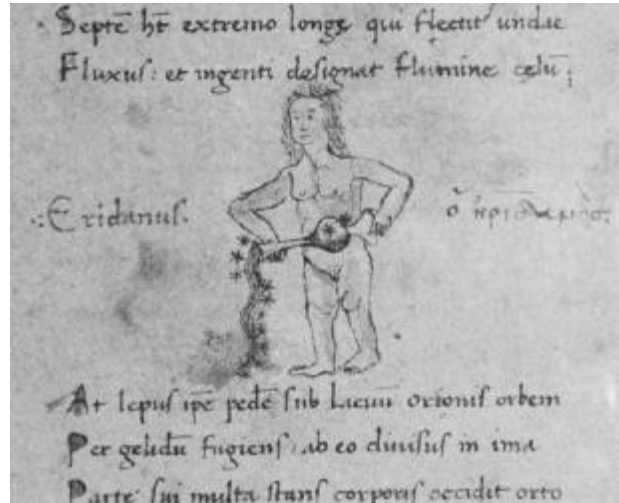 Septē hт̄ extremo longe qui flectit undae
Fluxus: et ingenti designat flumine celū;
.:Eridanus.
ὁ ἠριδανὸσ:
At lepus ip̄e pedē sub lacuū orionis orbem
Per gelidū fugiens, ab eo diuisus in ima
Parte sui multa stans corporis occidit orto